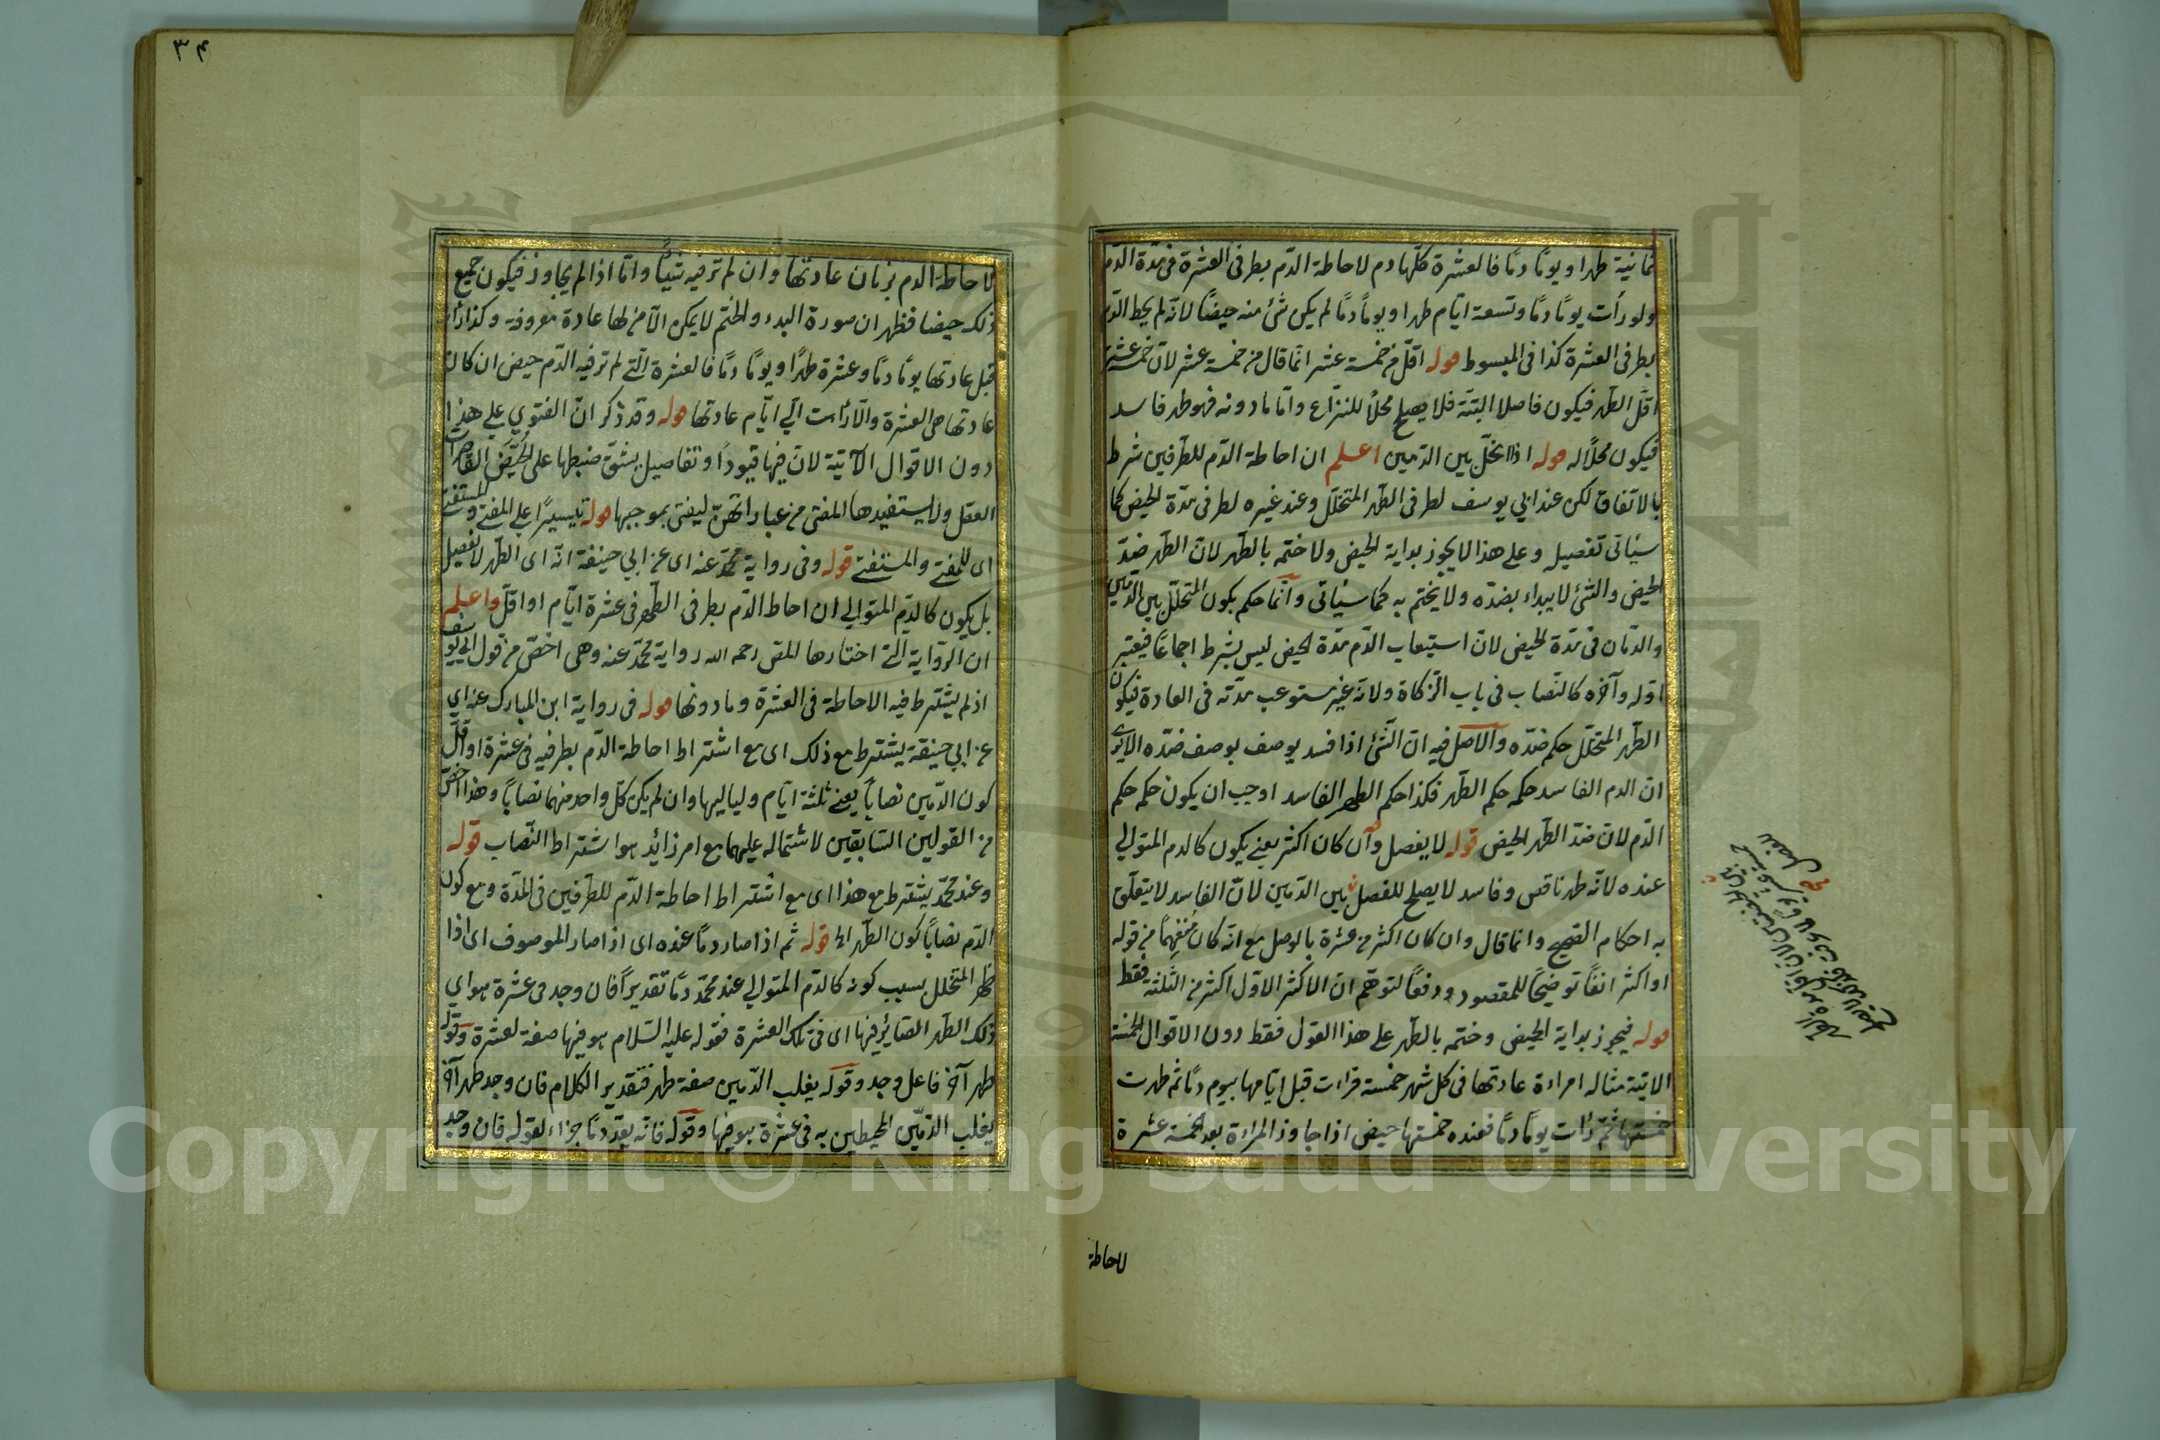 ثمانية طهرا ويوما دما فالعشرة كلها دم لاحاطة الدم بطرفى العشرة فى مدة الدم
ولو رأت يوما دما وتسعة ايام طهرا ويوما دما لم يكن شئ منه حيضا لانه لم يحط الدم
بطرفى العشرة كذا فى المبسوط قوله اقل من خمسة عشر انما قال من خمسة عشر لان خمسة عشر
اقل الطهر فيكون فاصلا البتة فلا يصلح محلا للنزاع واما ما دونه فهو طهر فاسد
فيكون محلا له قوله اذا تخلل بين الدمين اعلم ان احاطة الدم للطرفين شرط
بالاتفاق لكن عند ابي يوسف لطرفى الطهر المتخلل وعند غيره لطرفى مدة الحيض كما
سيأتى تفصيله وعلى هذا لا يجوز بداية الحيض ولا ختمه بالطهر لان الطهر ضد
الحيض والشئ لا يبداء بضده ولا يختم به كما سيأتى وانما حكم بكون المتخلل بين الدمين
والدمان فى مدة الحيض لان استيعاب الدم مدة الحيض ليس بشرط اجماعا فيعتبر
اوله وآخره كالنصاب فى باب الزكاة ولانه غير مستوعب مدته فى العادة فيكون
الطهر المتخلل حكم ضده والاصل فيه ان الشئ اذا فسد يوصف بوصف ضده الا يرى
ان الدم الفاسد حكمه حكم الطهر فكذا حكم الطهر الفاسد اوجب ان يكون حكمه حكم
الدم لان ضد الطهر الحيض قوله لا يفصل وان كان اكثر يعنى يكون كالدم المتوالي
عنده لانه طهر ناقص وفاسد لا يصلح للفصل بين الدمين لان الفاسد لا يتعلق
به احكام الصحيح وانما قال وان كان اكثر من عشرة بالوصل مع انه كان منفهما من قوله
او اكثر انفا توضيحا للمقصود ودفعا لتوهم ان الاكثر الاول اكثر من الثلثة فقط
قوله فيجوز بداية الحيض وختمه بالطهر على هذا القول فقط دون الاقوال الخمسة
الاتية مثاله امراءة عادتها فى كل شهر خمسة فرات قبل ايامها بيوم دما ثم طهرت
خمستها ثم رأت يوما دما فعنده خمستها حيض اذا جاوز المراءة بعد الخمسة عشرة
لاحاطة
٣٤
لاحاطة الدم بزمان عادتها وان لم تر فيه شيئا واما اذا لم يجاوز فيكون جميع
ذلك حيضا فظهر ان صورة البدء والختم لا يكون الا من لها عادة معروفة وكذا رأت
قبل عادتها يوما دما وعشرة طهرا ويوما دما فالعشرة التي لم تر فيه الدم حيض ان كانت
عادتها هى العشرة والا ردت الى ايام عادتها قوله وقد ذكر ان الفتوي على هذا
دون الاقوال الآتية لان فيها قيودا وتفاصيل يشق ضبطها على الحيض القاصرات
العقل ولا يستفيدها المفتى من عباراتهن ليفتى بموجبها قوله تيسيرا على المفتى والمستفتى
اى للمفتى والمستفتى قوله وفى رواية محمد عنه اى عن ابي حنيفة انه اى الطهر لا يفصل
بل يكون كالدم المتوالي ان احاط الدم بطرفى الطهر فى عشرة ايام او اقل واعلم
ان الرواية التى اختارها المص رحمه الله رواية محمد عنه وهى اخص من قول ابي يوسف
اذ لم يشترط فيه الاحاطة فى العشرة وما دونها قوله فى رواية ابن المبارك عنه اي
عن ابي حنيفة يشترط مع ذلك اى مع اشتراط احاطة الدم بطرفيه فى عشرة او اقل
كون الدمين نصابا يعنى ثلثة ايام ولياليها وان لم يكن كل واحد منهما نصابا وهذا اخص
من القولين السابقين لاشتماله عليهما مع امر زائد هو اشتراط النصاب قوله
وعند محمد يشترط مع هذا اى مع اشتراط احاطة الدم للطرفين فى المدة ومع كون
الدم نصابا كون الطهر الخ قوله ثم اذا صار دما عنده اى اذا صار الموصوف اى اذا
طهر المتخلل بسبب كونه كالدم المتوالي عند محمد دما تقديرا فان وجد فى عشرة هو اي
ذلك الطهر الصائر فيها اى فى تلك العشرة فقوله عليه السلام هو فيها صفة لعشرة وقوله
طهر آخر فاعل وجد وقوله يغلب الدمين صفة طهر فتقدير الكلام فان وجد طهر آخر
يغلب الدمين المحيطين به فى عشرة هو فيها وقوله فانه يعد دما جزاء لقوله فان وجد
Copyright © King Saud University